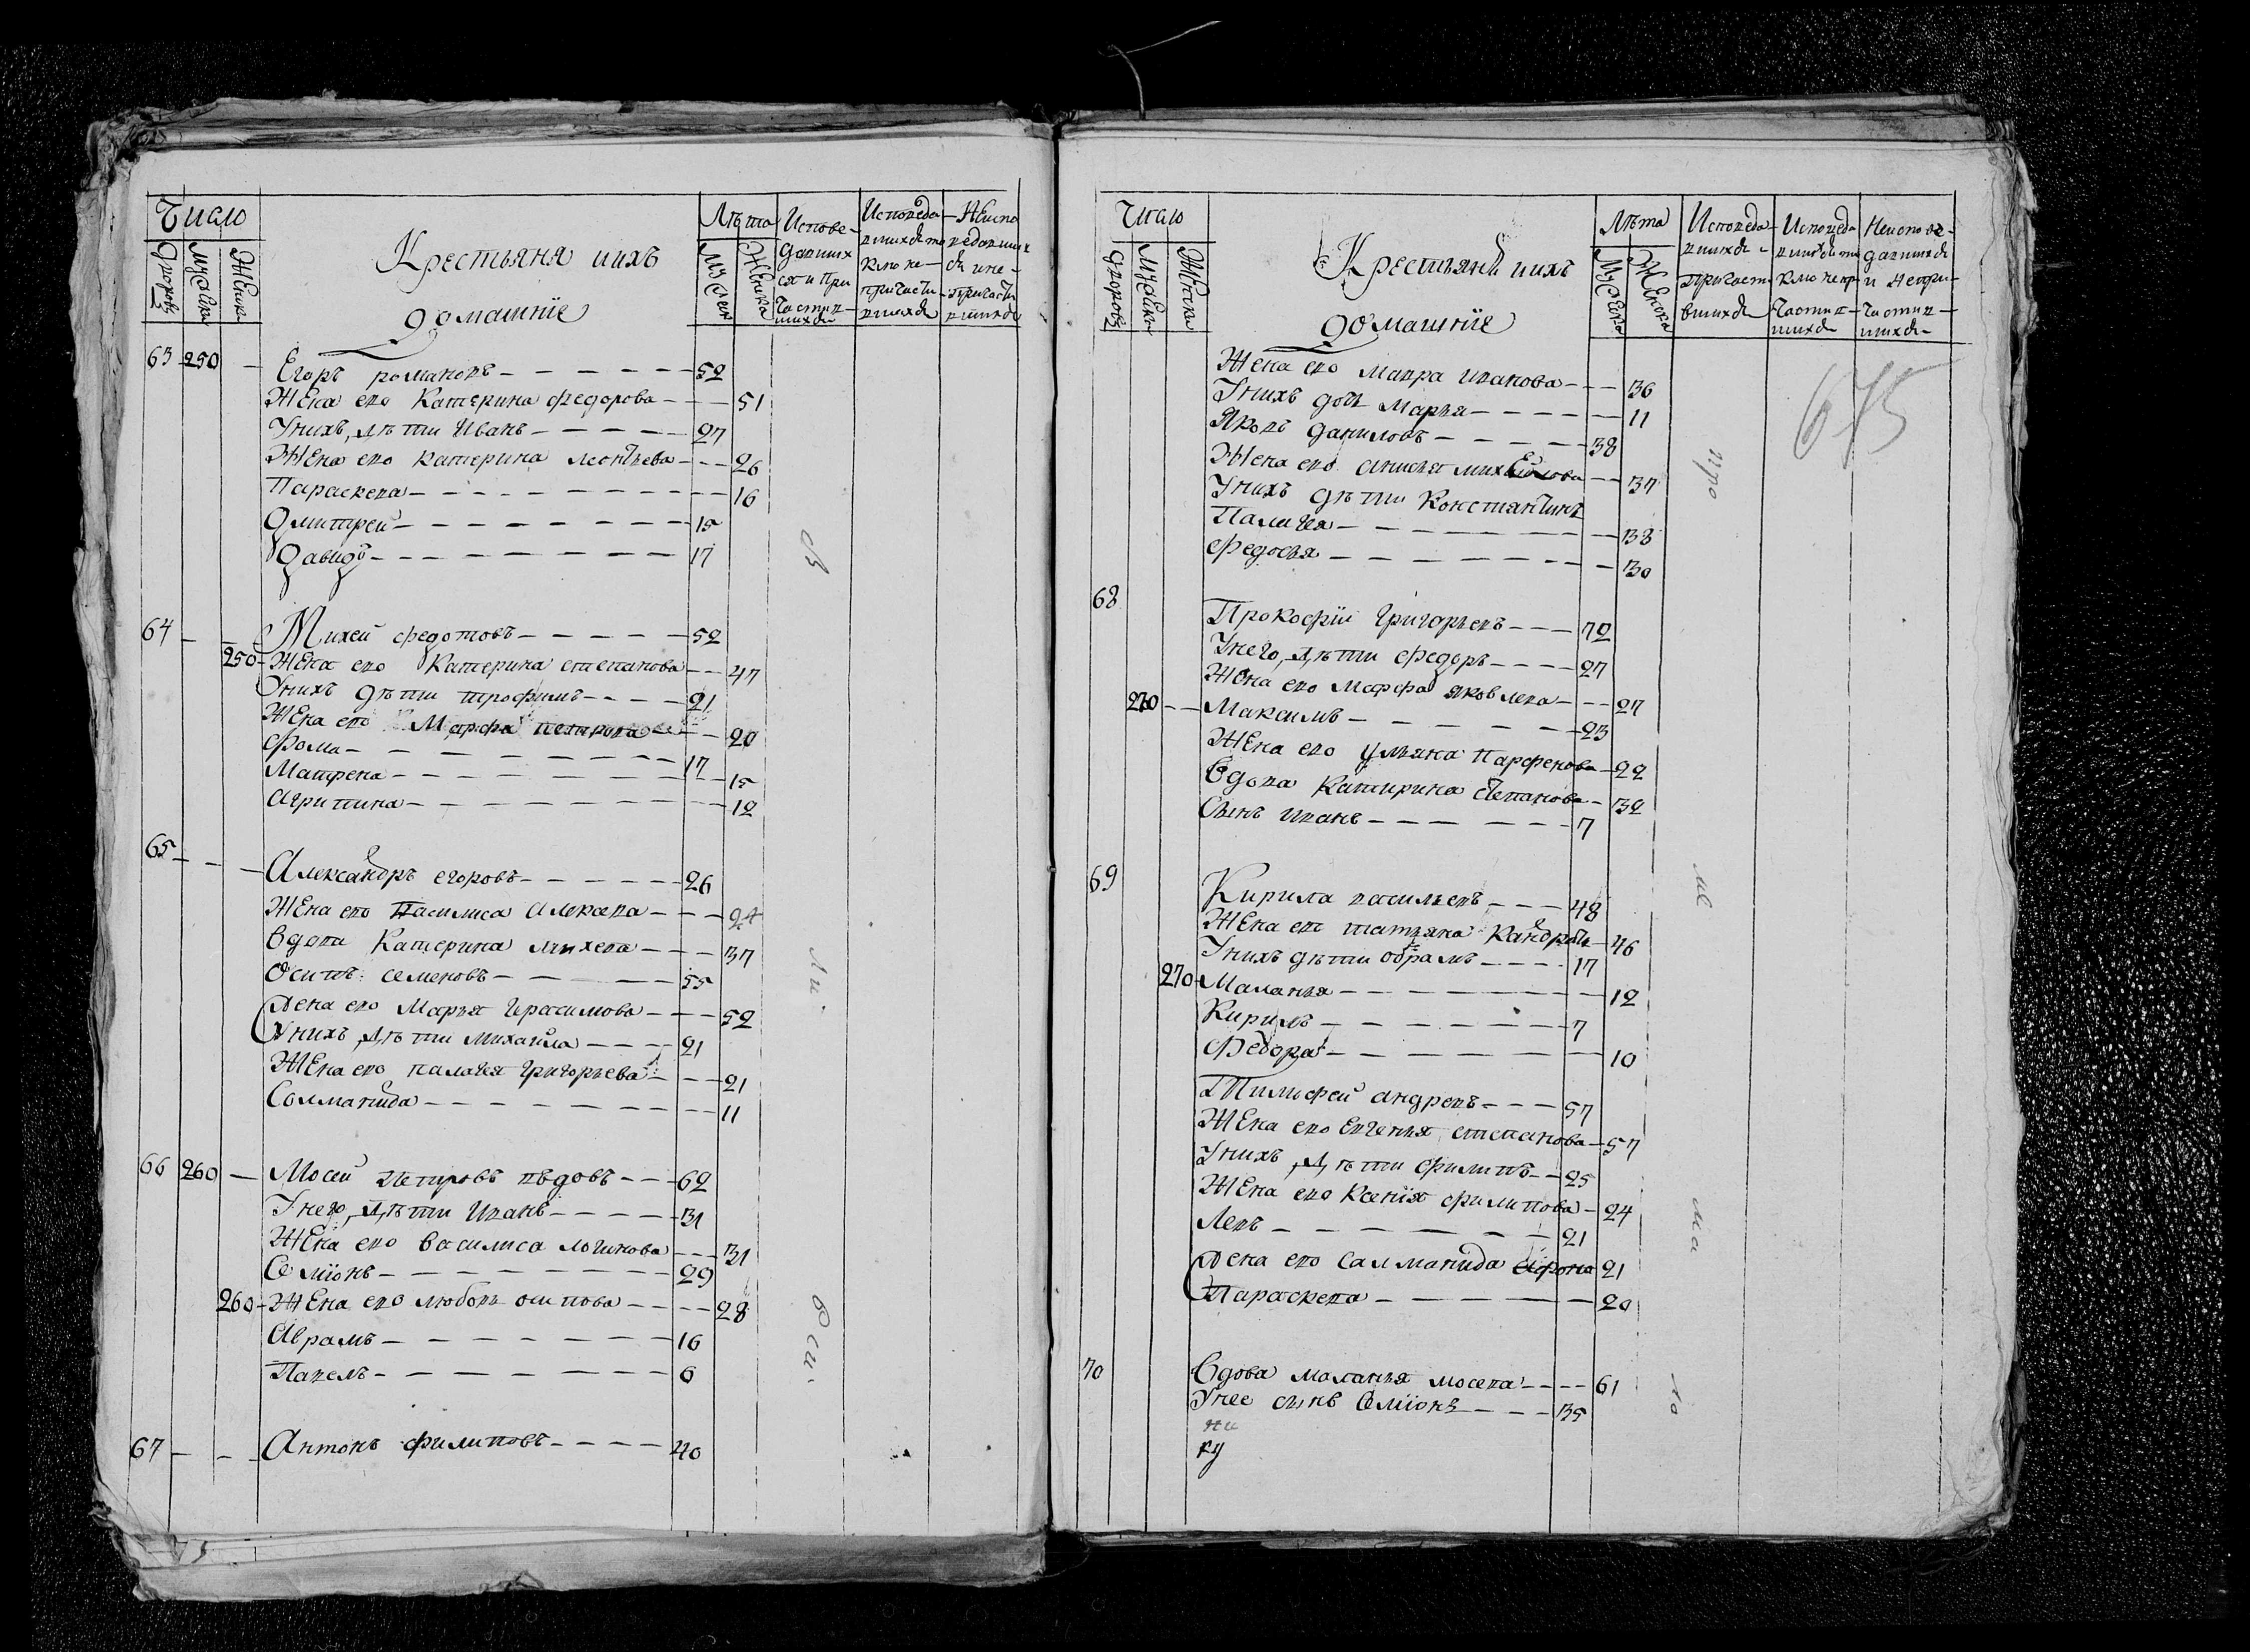 Число
Дворовъ
Мужска
Женска
Крестьяня иихъ
домашніе
Лѣта
Муска
Женска
Испове-
давших
ся и при
частив-
шихся
Исповеда-
вшихся то
клю не-
причасти-
вшихся
Неиспо
ведавших
ся и не-
причасти
вшихся
63 250 Егоръ романовъ 52
Жена ево Катерина федорова 51
Унихъ дѣти Иванъ 27
Жена ево катерина леонтьева 26
Параскева 16
Дмитрей 15
Давидъ 17
64 Михей федотовъ 52
250 Жена ево Катерина степанова 47
Унихъ дѣти трофимъ 21
Жена ево Марфа 20
Фома 17
Матрена 15
Агрипина 12
65 Александръ егоровъ 26
Жена ево Василиса Алексева 24
Вдова Катерина михева 37
Осипъ семеновъ 55
Жена ево Марья Герасимова 52
Унихъ дѣти Михайла 21
Жена ево палагея Григорьева 21
Солманида 11
66 260 Мосей Петровъ вдовъ 62
Унего дѣти Иванъ 31
Жена ево василиса логинова 31
Семіонъ 29
260 Жена ево любовь осипова 28
Аврамъ 16
Павелъ 6
67 Антонъ филиповъ 40
Число
дворовъ
Мужскъ
Женска
Крестьяня иихъ
домашніе
Лѣта
Мужска
Женска
Исповеда-
вшихся
Причасти
вшихся
Исповеда
вшихся то
клю непри-
частив-
шихся
Неиспове-
давшихся
и непри-
частив-
шихся
675
Жена ево мавра иванова 36
Унихъ дочь Марья 11
Яковъ даниловъ 38
Жена ево анисья михайлова 37
Унихъ дѣти Констянтинъ
Палагея 38
Федосья 30
68 Прокофіи Григорьевъ 72
Унего дѣти федоръ 27
Жена ево Марфа яковлева 27
270 Максимъ 23
Жена ево ульяна Парфенова 22
Вдова Катирина степанова 32
Сынъ иванъ 7
69 Кирила васильевъ 48
Жена ево татьяна 46
Унихъ дѣти обрамъ 17
270 Маланья 12
Кирилъ 7
Федора 10
Тимофей андревъ 57
Жена ево Евгенья степанова 57
Унихъ дѣти филипъ 25
Жена ево Ксенія филипова 24
Левъ 21
Жена ево Салманида 21
Параскева 20
70 Вдова маланья мосева 61
Унее сынъ Семіонъ 35